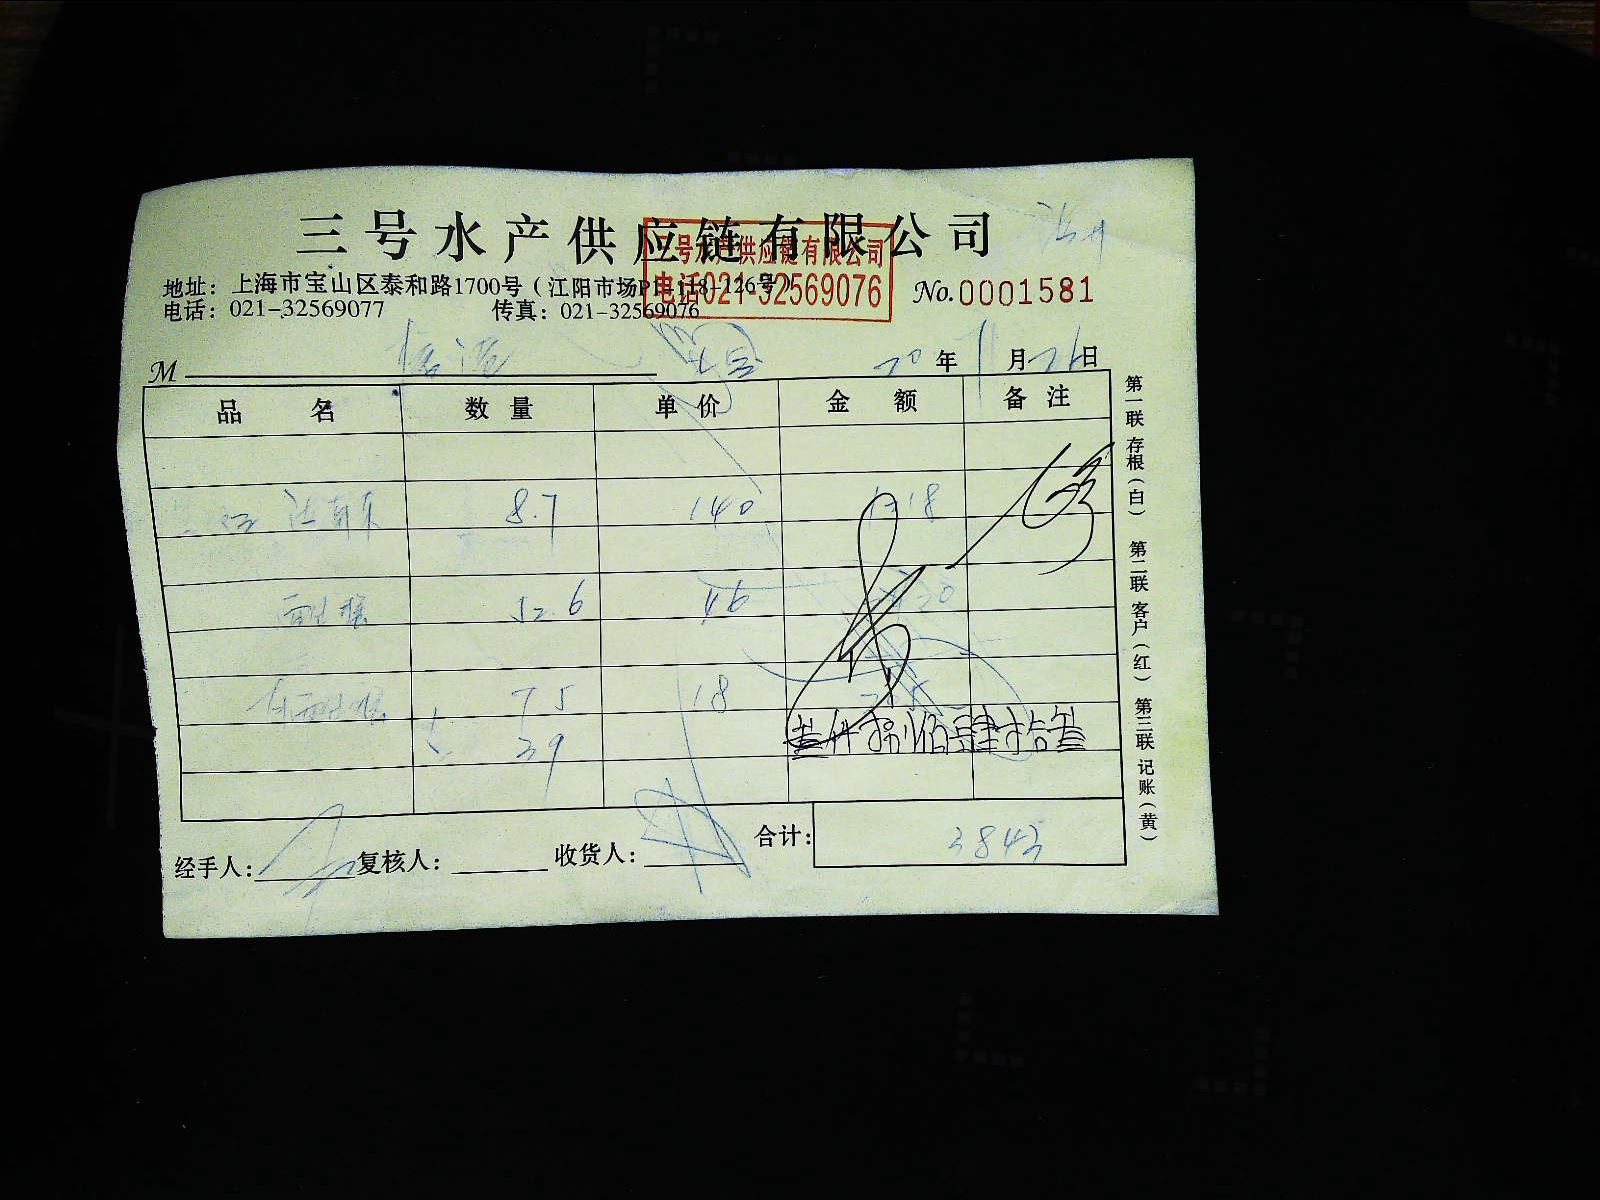 三号水产供应链有限公司
三号水产供应链有限公司
电话021-32569076
地址：上海市宝山区泰和路1700号（江阳市场P1-118-126号）
No.0001581
电话：021-32569077 传真：021-32569076
M
20年11月26日
品名 数量 单价 金额 备注
8.7 140 1218
52.6 46
75 18
39
叁仟捌佰肆拾叁
合计：3843
经手人： 复核人： 收货人：
第一联 存根（白） 第二联 客户（红） 第三联 记账（黄）